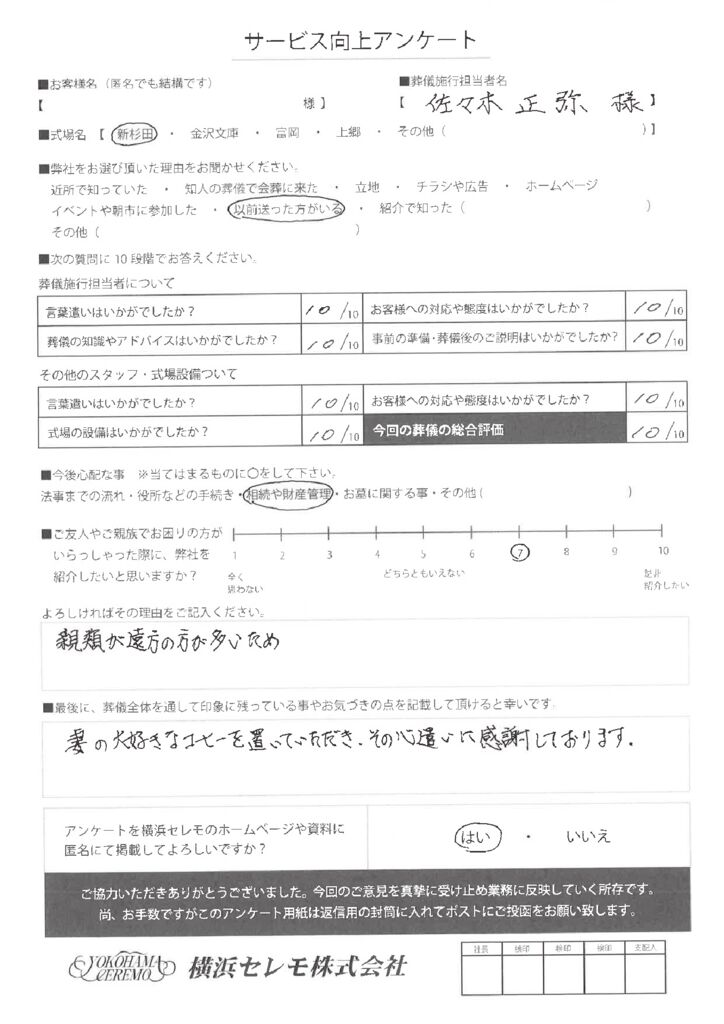 サービス向上アンケート
■お客様名（匿名でも結構です）
【 様】
■葬儀施行担当者名
【 佐々木 正弥 様 】
■式場名【 新杉田 ・ 金沢文庫 ・ 富岡 ・ 上郷 ・ その他（ ）】
■弊社をお選び頂いた理由をお聞かせください。
近所で知っていた ・ 知人の葬儀で会葬に来た ・ 立地 ・ チラシや広告 ・ ホームページ
イベントや朝市に参加した ・ 以前送った方がいる ・ 紹介で知った（ ）
その他（ ）
■次の質問に10段階でお答えください。
葬儀施行担当者について
言葉遣いはいかがでしたか？ 10/10 お客様への対応や態度はいかがでしたか？ 10/10
葬儀の知識やアドバイスはいかがでしたか？ 10/10 事前の準備・葬儀後のご説明はいかがでしたか？ 10/10
その他のスタッフ・式場設備ついて
言葉遣いはいかがでしたか？ 10/10 お客様への対応や態度はいかがでしたか？ 10/10
式場の設備はいかがでしたか？ 10/10 今回の葬儀の総合評価 10/10
■今後心配な事 ※当てはまるものに〇をして下さい。
法事までの流れ・役所などの手続き・相続や財産管理・お墓に関する事・その他（ ）
■ご友人やご親族でお困りの方が
いらっしゃった際に、弊社を
紹介したいと思いますか？
1 2 3 4 5 6 7 8 9 10
全く
思わない
どちらともいえない
是非
紹介したい
よろしければその理由をご記入ください。
親類が遠方の方が多いため
■最後に、葬儀全体を通して印象に残っている事やお気づきの点を記載して頂けると幸いです。
妻の大好きなコーヒーを置いていただき、その心遣いに感謝しております。
アンケートを横浜セレモのホームページや資料に
匿名にて掲載してよろしいですか？
はい ・ いいえ
ご協力いただきありがとうございました。今回のご意見を真摯に受け止め業務に反映していく所存です。
尚、お手数ですがこのアンケート用紙は返信用の封筒に入れてポストにご投函をお願い致します。
YOKOHAMA
CEREMO
横浜セレモ株式会社
社長 検印 検印 検印 支配人